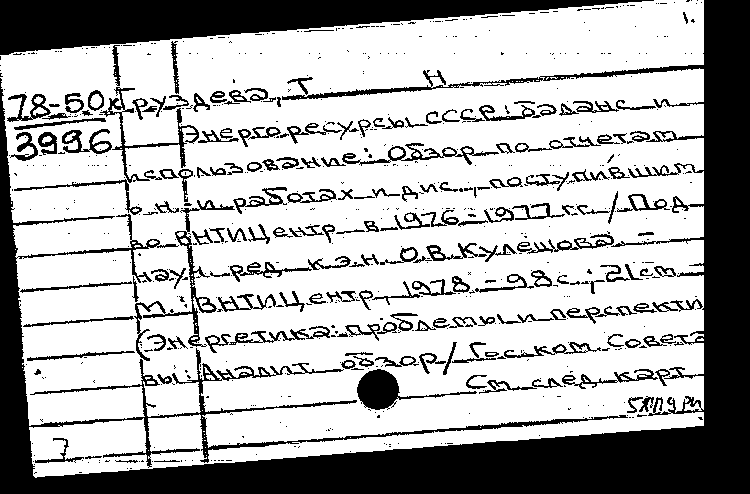 1.
78-50к Груздева, Т Н
3996 Энергоресурсы СССР: баланс и
использование: Обзор по отчетам
о н.-и. работах и дис., поступившим
во ВНТИЦентр в 1976-1977 гг. / Под
науч. ред. к.э.н. О.В. Кулешова. –
М.: ВНТИЦентр, 1978. – 98 с.; 21 см –
(Энергетика: проблемы и перспекти
вы: Аналит. обзор / Гос. ком. Совета
См. след. карт.
7